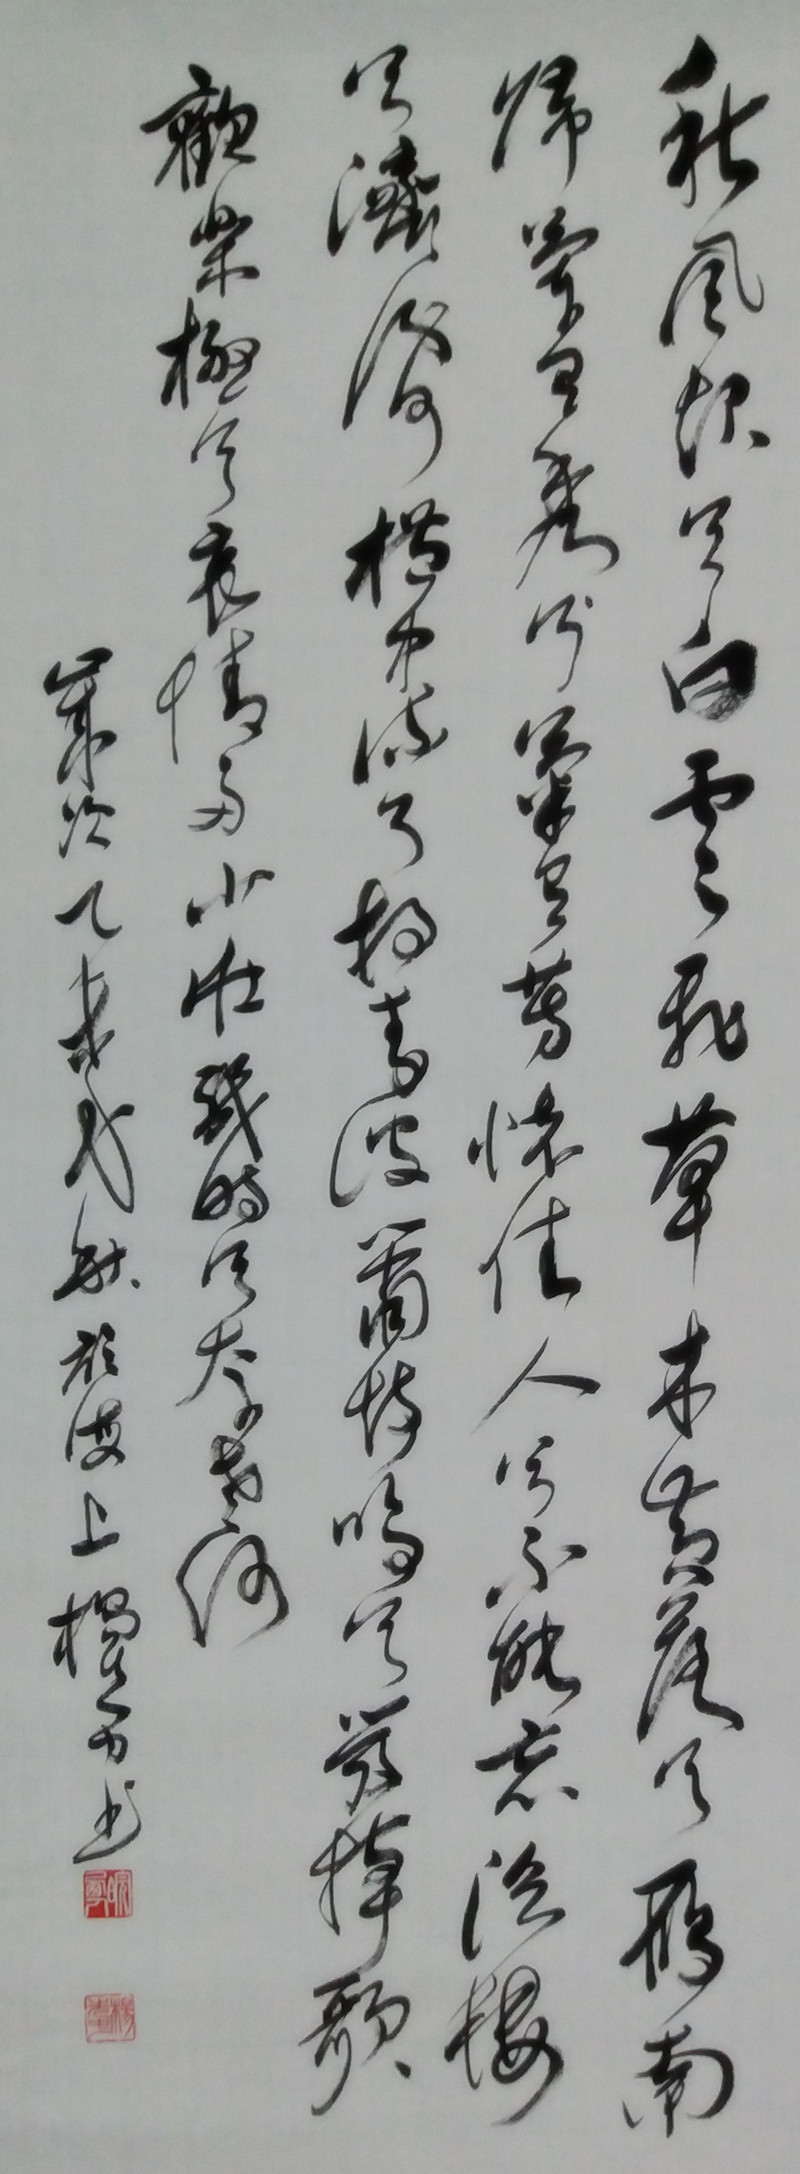 秋風起兮白雲飛草木黃落兮雁南
歸蘭有秀兮菊有芳懷佳人兮不能忘泛樓
兮濟汾河橫中流兮揚素波簫鼓鳴兮發棹歌
歡樂極兮哀情多少壯幾時兮奈老何
歲次乙未 秋 上 書